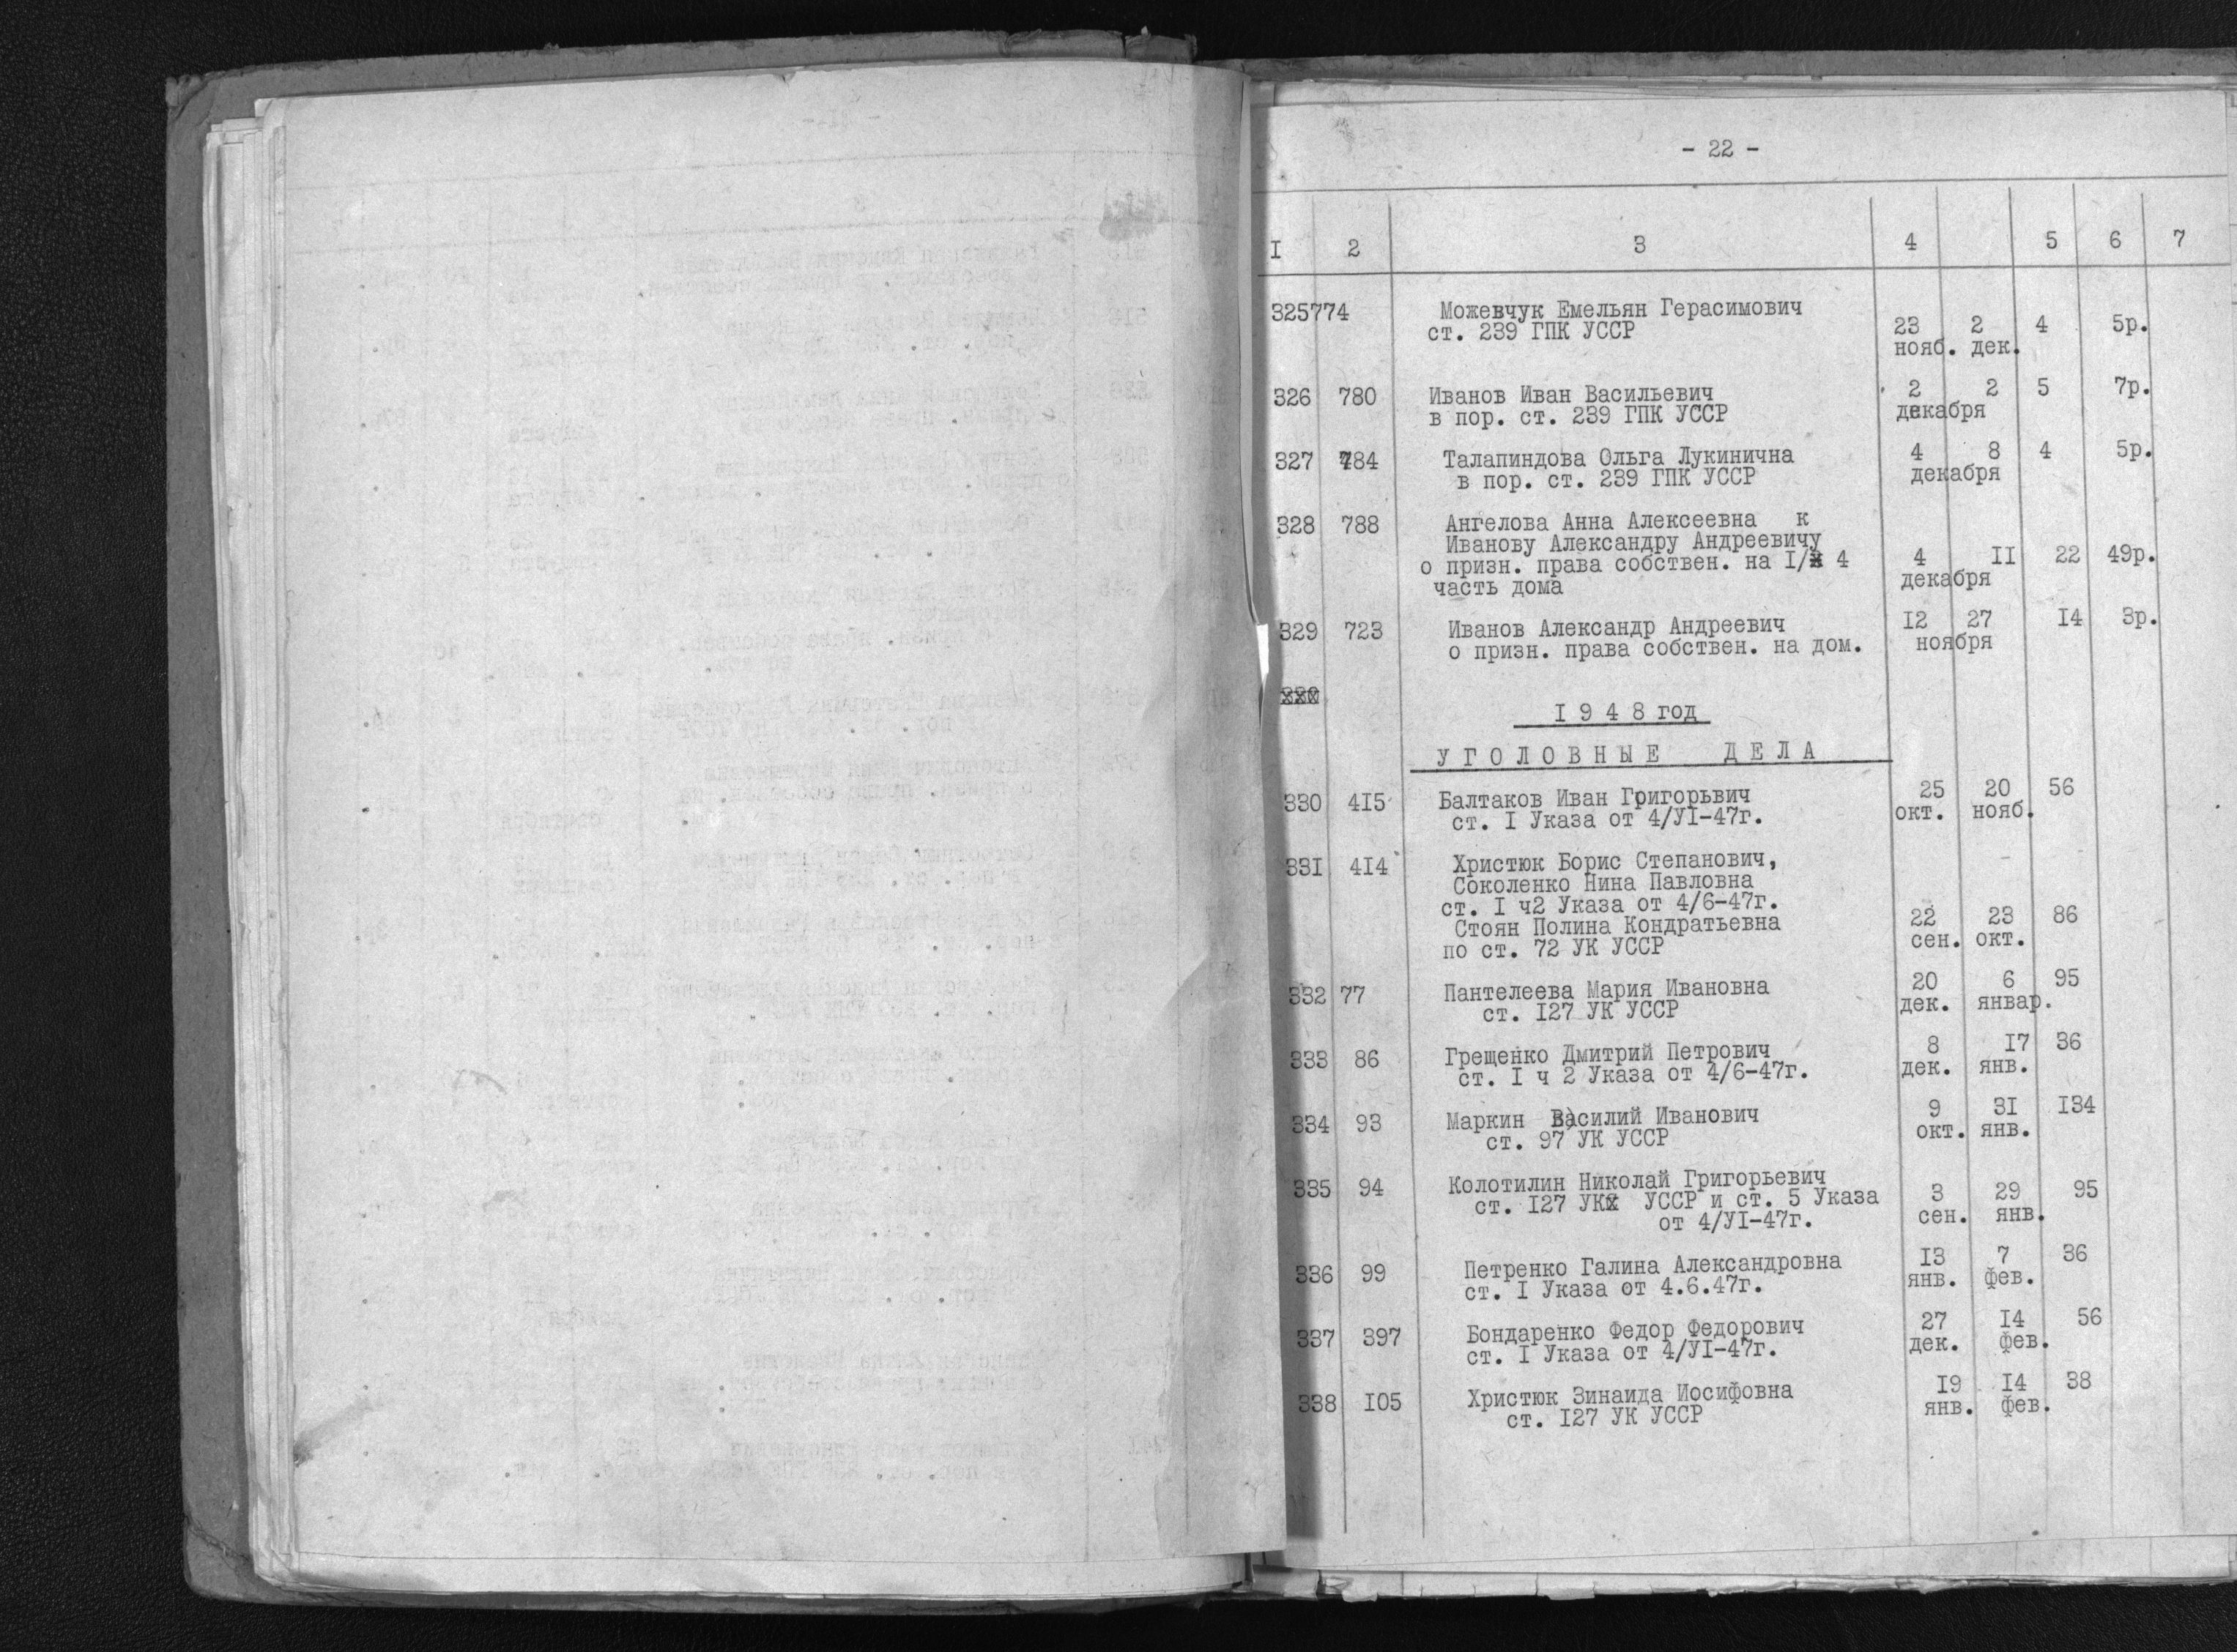 - 22 -
I 2 3 4 5 6 7
325774 Можевчук Емельян Герасимович
ст. 239 ГПК УССР 23 2 4 5р.
нояб. дек.
326 780 Иванов Иван Васильевич 2 2 5 7р.
в пор. ст. 239 ГПК УССР декабря
327 784 Талапиндова Ольга Лукинична 4 8 4 5р.
в пор. ст. 239 ГПК УССР декабря
328 788 Ангелова Анна Алексеевна к
Иванову Александру Андреевичу
о призн. права собствен. на I/ 4 4 II 22 49р.
часть дома декабря
329 723 Иванов Александр Андреевич I2 27 I4 3р.
о призн. права собствен. на дом. ноября
I 9 4 8 год
У Г О Л О В Н Ы Е Д Е Л А
330 4I5 Балтаков Иван Григорьвич 25 20 56
ст. I Указа от 4/УI-47г. окт. нояб.
33I 4I4 Христюк Борис Степанович,
Соколенко Нина Павловна
ст. I ч2 Указа от 4/6-47г.
Стоян Полина Кондратьевна 22 23 86
по ст. 72 УК УССР сен. окт.
332 77 Пантелеева Мария Ивановна 20 6 95
ст. I27 УК УССР дек. январ.
333 86 Грещенко Дмитрий Петрович 8 I7 36
ст. I ч 2 Указа от 4/6-47г. дек. янв.
334 93 Маркин Василий Иванович 9 3I I34
ст. 97 УК УССР окт. янв.
335 94 Колотилин Николай Григорьевич
ст. I27 УК УССР и ст. 5 Указа 3 29 95
от 4/УI-47г. сен. янв.
336 99 Петренко Галина Александровна I3 7 36
ст. I Указа от 4.6.47г. янв. фев.
337 397 Бондаренко Федор Федорович 27 I4 56
ст. I Указа от 4/УI-47г. дек. фев.
338 I05 Христюк Зинаида Иосифовна I9 I4 38
ст. I27 УК УССР янв. фев.